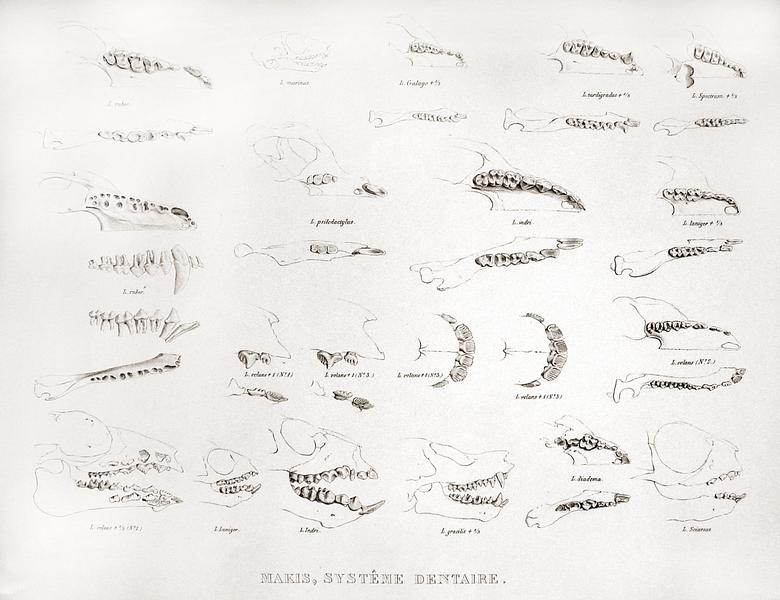 L. ruber.
L. murinus.
L. Galago + ⅔
L. tardigradus + ½
L. Spectrum. +
L. psilodactylus.
L. indri.
L. laniger +
L. ruber.
L. volans + 1 (Nº1)
L. volans + 1 (Nº3.)
L. volans + 1 (Nº3.)
L. volans + 1 (Nº3)
L. volans (Nº2.)
L. volans +
L. Laniger.
L. Indri.
L. gracilis +
L. diadema.
L. Sciureus.
MAKIS, SYSTÊME DENTAIRE.